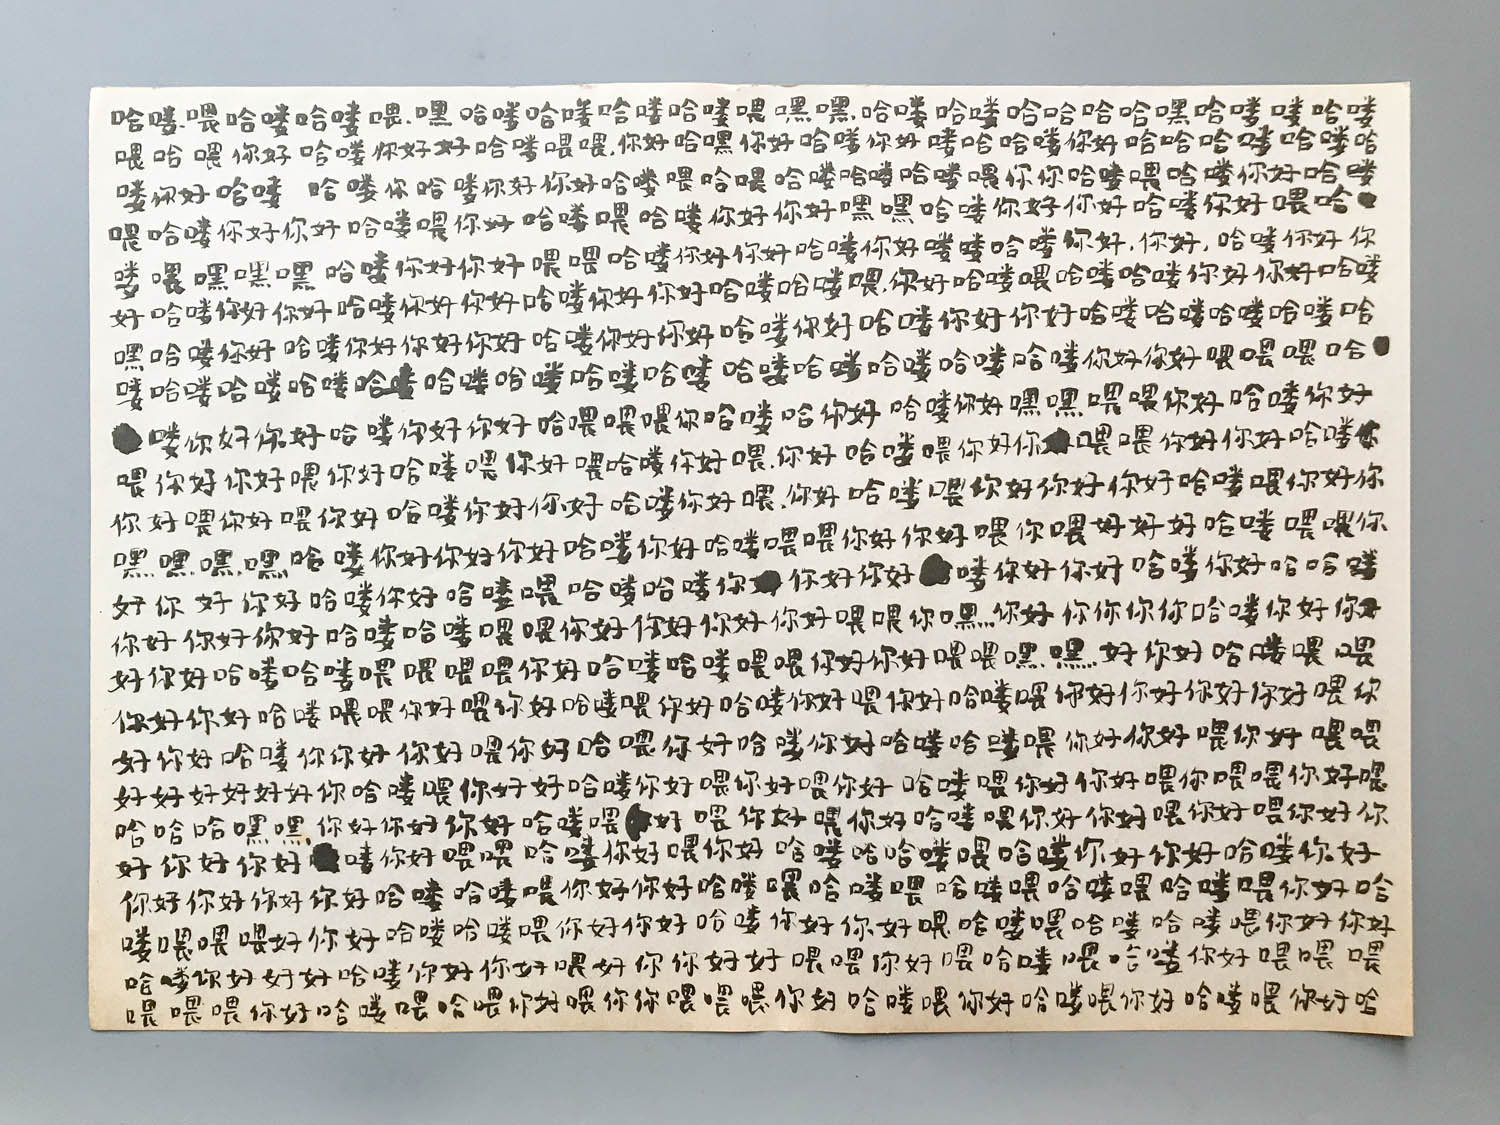 哈喽.喂哈喽哈喽喂.嘿哈喽哈喽哈喽哈喽喂嘿嘿.哈喽哈喽哈哈哈哈嘿哈喽喽哈喽
喂哈喂你好哈喽你好好哈喽喂喂.你好哈嘿你好哈喽你好喽哈哈喽你好哈哈哈喽哈喽哈
喽你好哈喽 哈喽你哈喽你好你好哈喽喂哈喂哈喽哈喽哈喽喂你你哈喽喂哈喽你好哈喽
喂哈喽你好你好哈喽喂你好哈喽喂哈喽你好你好嘿嘿哈喽你好你好哈喽你好喂哈
喽喂嘿嘿嘿哈喽你好你好喂喂哈喽你好你好哈喽你好喽喽哈喽你好.你好,哈喽你好你
好哈喽你好你好哈喽你好你好哈喽你好你好哈喽哈喽喂.你好哈喽喂哈喽哈喽你好你好哈喽
嘿哈喽你好哈喽你好你好你好哈喽你好你好哈喽你好哈喽你好你好哈喽哈喽哈喽哈喽哈
喽哈喽哈喽哈喽哈喽哈喽哈喽哈喽哈喽哈喽哈喽哈喽哈喽哈喽你好你好喂喂喂哈
喽你好你好哈喽你好你好哈喂喂喂你哈喽哈你好哈喽你好嘿嘿喂喂你好哈喽你好
喂你好你好喂你好哈喽喂你好喂哈喽你好喂.你好哈喽喂你好你喂喂你好你好哈喽
你好喂你好喂你好哈喽你好你好哈喽你好喂.你好哈喽喂你好你好你好哈喽喂你好你
嘿.嘿.嘿.嘿.哈喽你好你好你好哈喽你好哈喽喂喂你好你好喂你喂好好好哈喽喂喂你
好你好你好哈喽你好哈喽喂哈喽哈喽你你好你好喽你好你好哈喽你好哈哈喽
你好你好你好哈喽哈喽喂喂你好你好你好你好喂喂你嘿...你好你你你你哈喽你好你
好你好哈喽哈喽喂喂喂喂你好哈喽哈喽喂喂你好你好喂喂嘿.嘿..好你好哈喽喂喂
你好你好哈喽喂喂你好喂你好哈喽喂你好哈喽你好喂你好哈喽喂你好你好你好你好喂你
好你好哈喽你你好你好喂你好哈喂你好哈喽你好哈喽哈喽喂你好你好喂你好喂喂
好好好好好好你哈喽喂你好好哈喽你好喂你好喂你好哈喽喂你好你好喂你喂喂你好喂
哈哈哈嘿嘿.你好你好你好哈喽喂好喂你好喂你好哈喽喂你好你好喂你好喂你好你
好你好你好喽你好喂喂哈喽你好喂你好哈喽哈哈喽喂哈喽你好你好哈喽你好
你好你好你好你好哈喽哈喽喂你好你好哈喽喂哈喽喂哈喽喂哈喽喂哈喽喂你好哈
喽喂喂喂好你好哈喽哈喽喂你好你好哈喽你好你好喂哈喽喂哈喽哈喽喂你好你好
哈喽你好好好哈喽你好你好喂好你你好好喂喂你好喂哈喽喂哈喽你好喂喂喂
喂喂喂你好哈喽喂哈喂你好喂你你喂喂喂你好哈喽喂你好哈喽喂你好哈喽喂你好哈